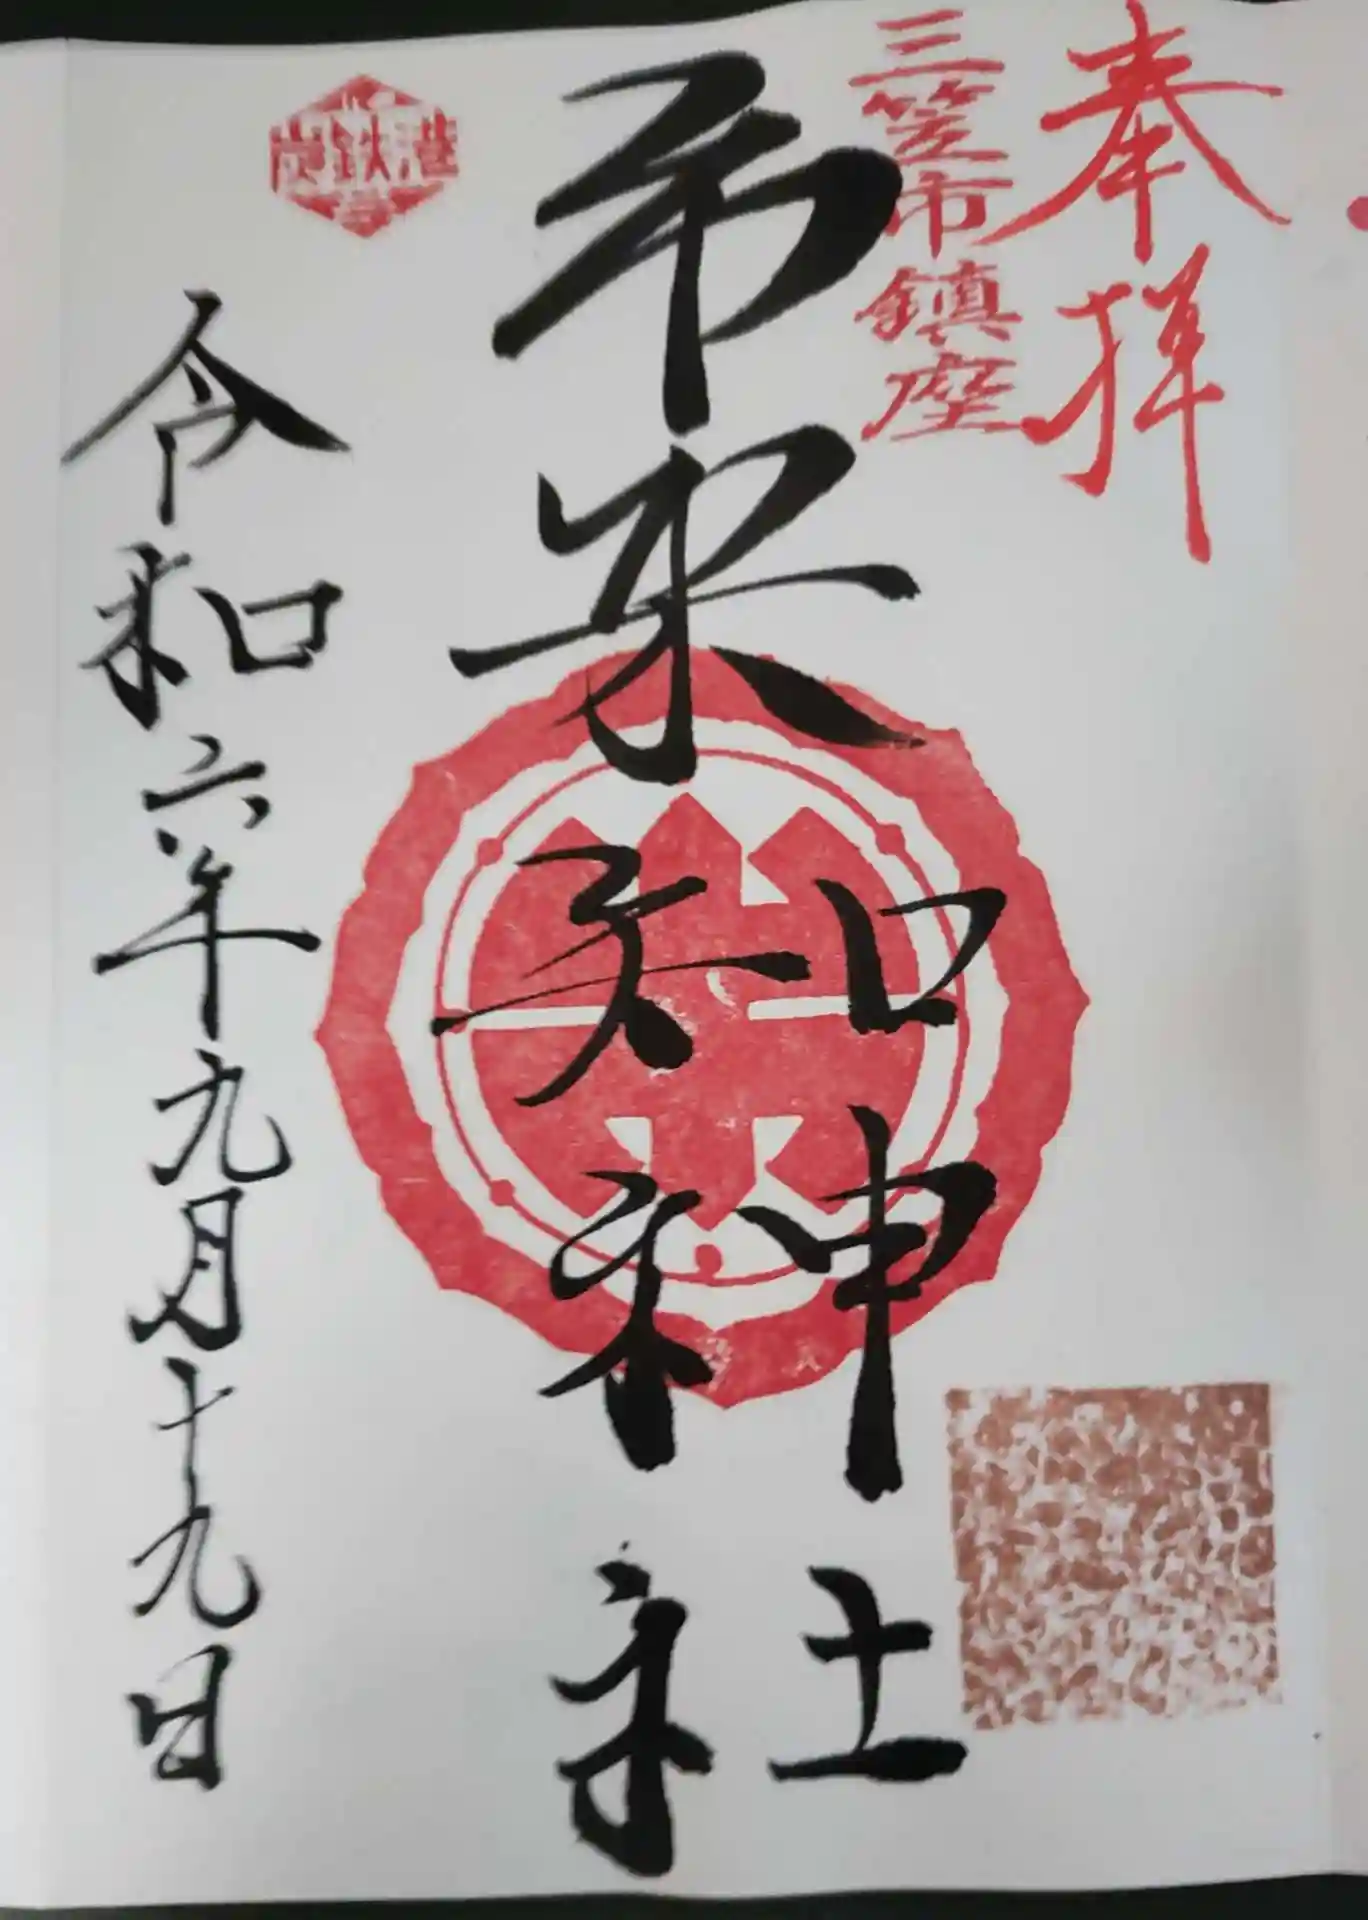 奉拝
三笠市鎮座
市来知神社
令和六年九月十九日
炭鉄港